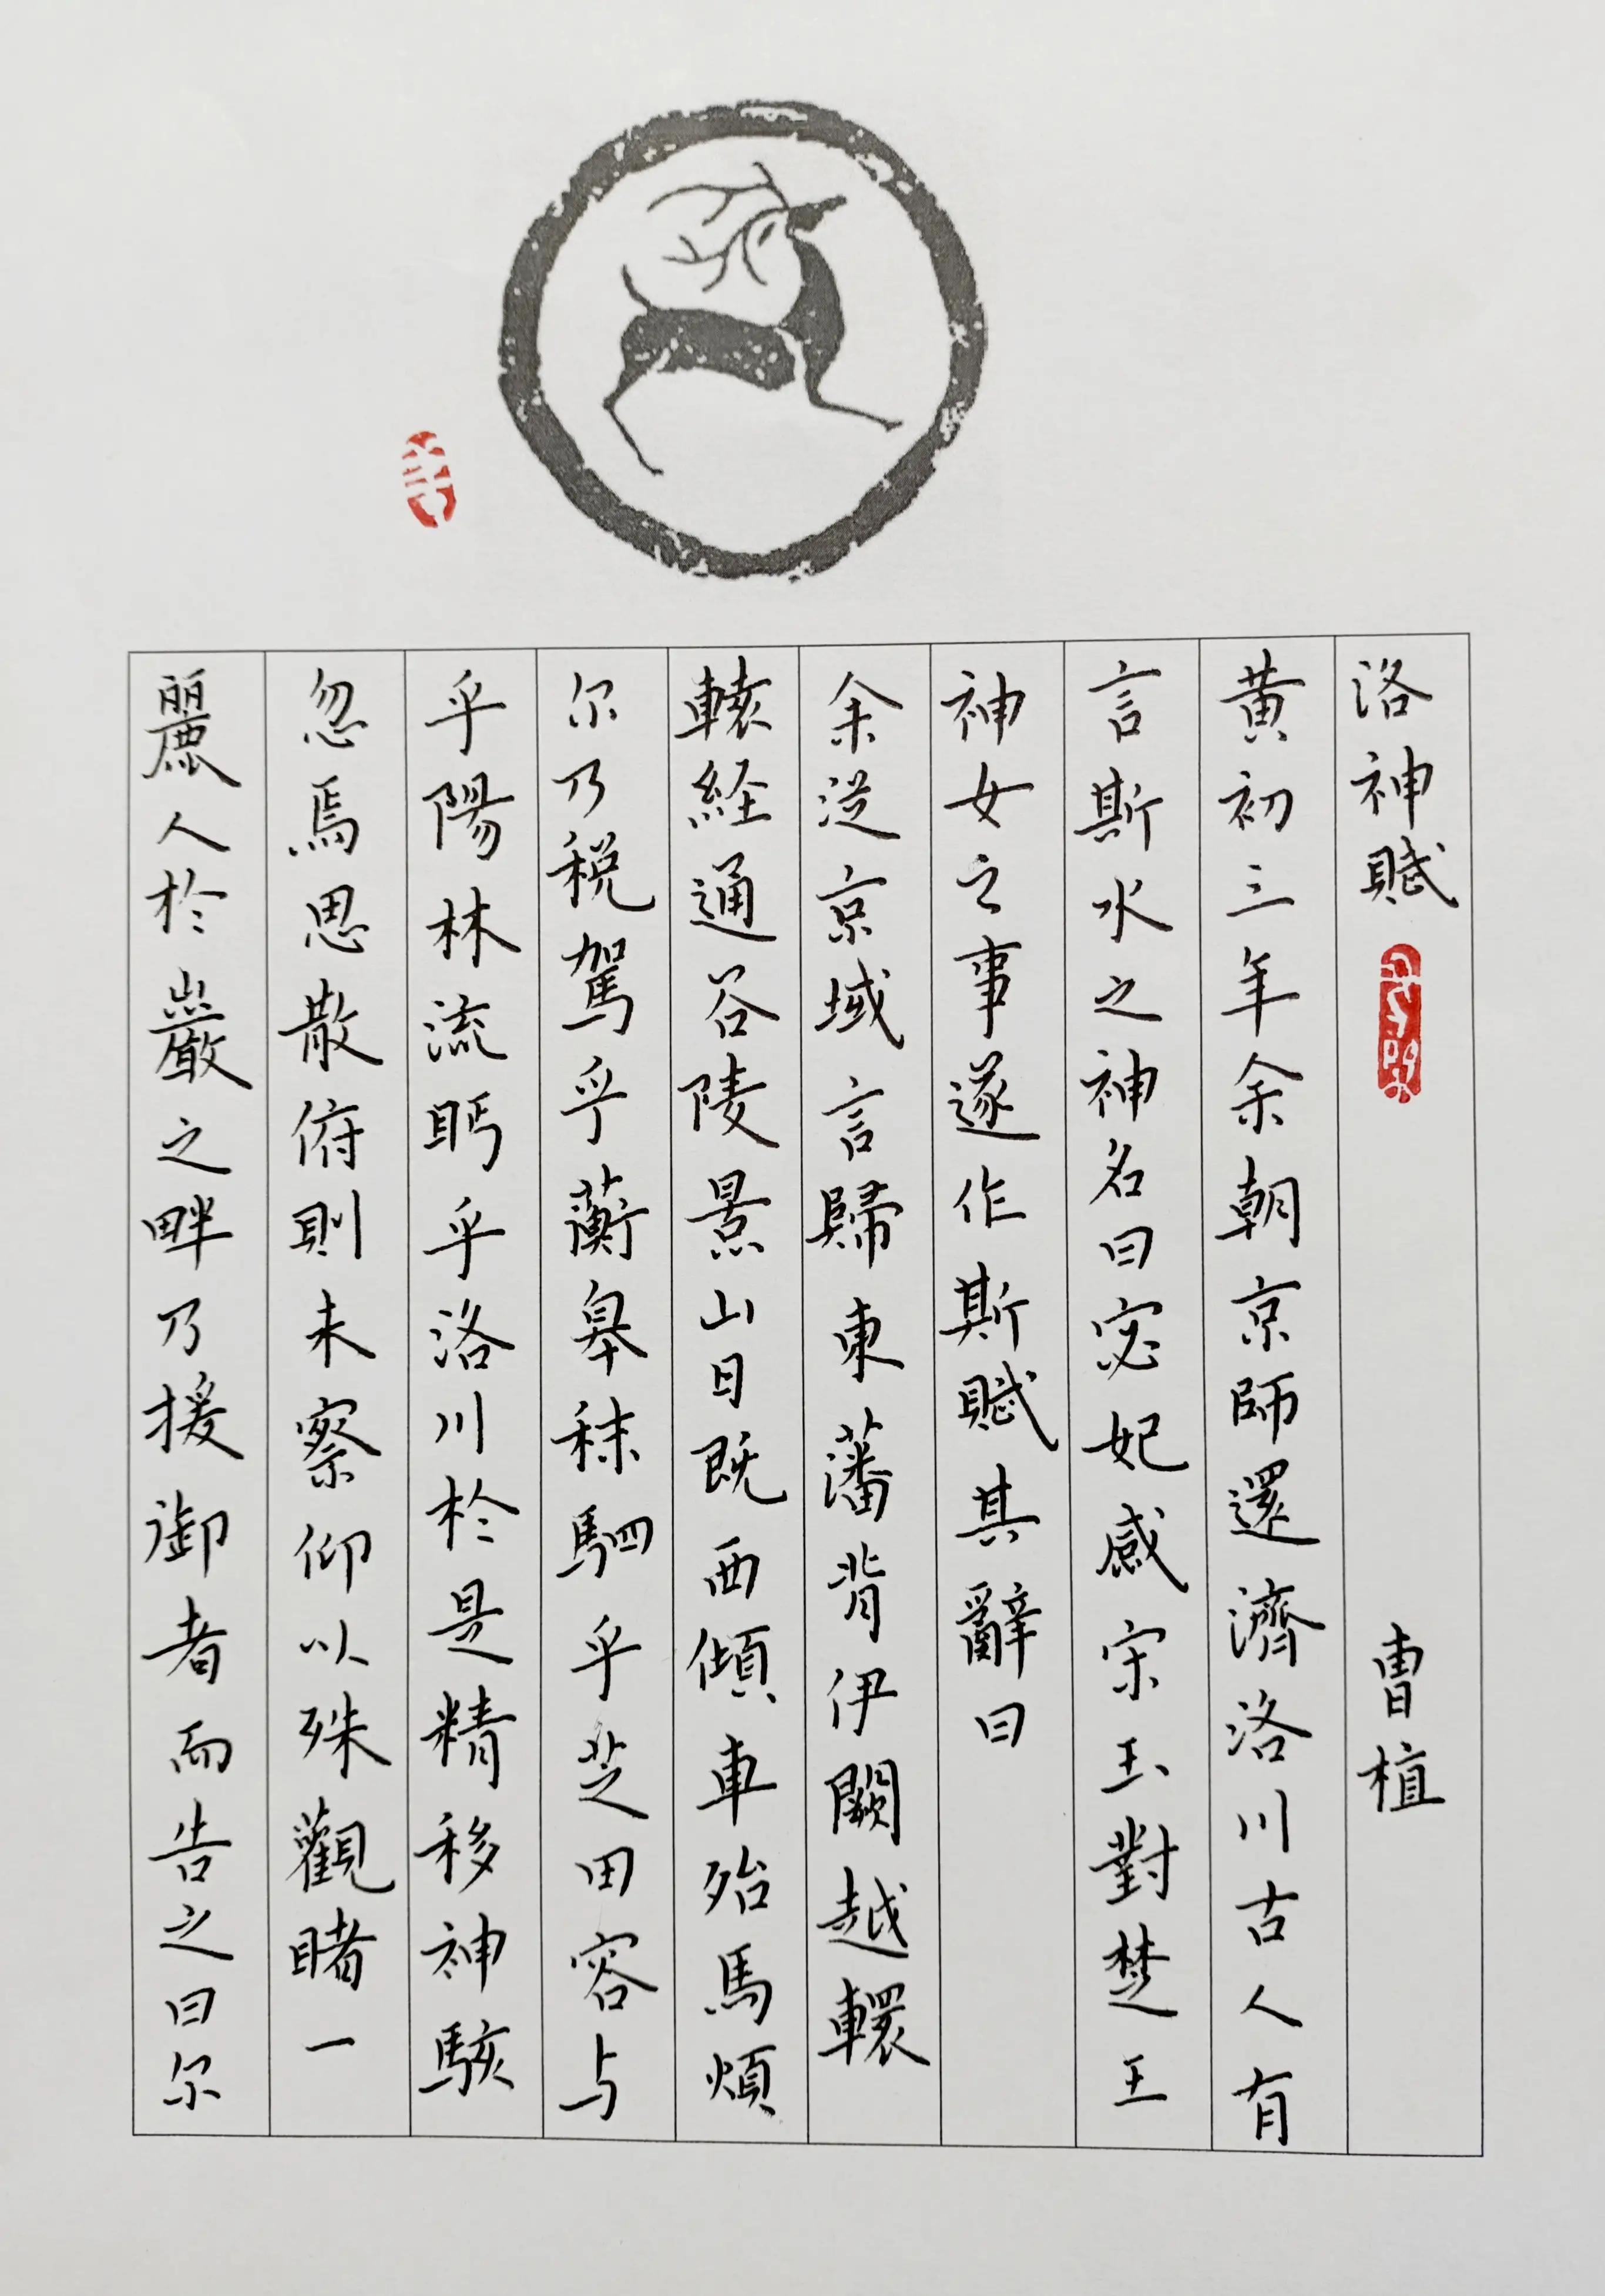 洛神賦 曹植
黄初三年余朝京師還濟洛川古人有
言斯水之神名曰宓妃感宋玉對楚王
神女之事遂作斯賦其辭曰
余從京域言歸東藩背伊闕越轘
轅経通谷陵景山日既西傾車殆馬煩
尔乃税駕乎蘅皋秣駟乎芝田容与
乎陽林流眄乎洛川於是精移神駭
忽焉思散俯則未察仰以殊觀睹一
麗人於巖之畔乃援御者而告之曰尔